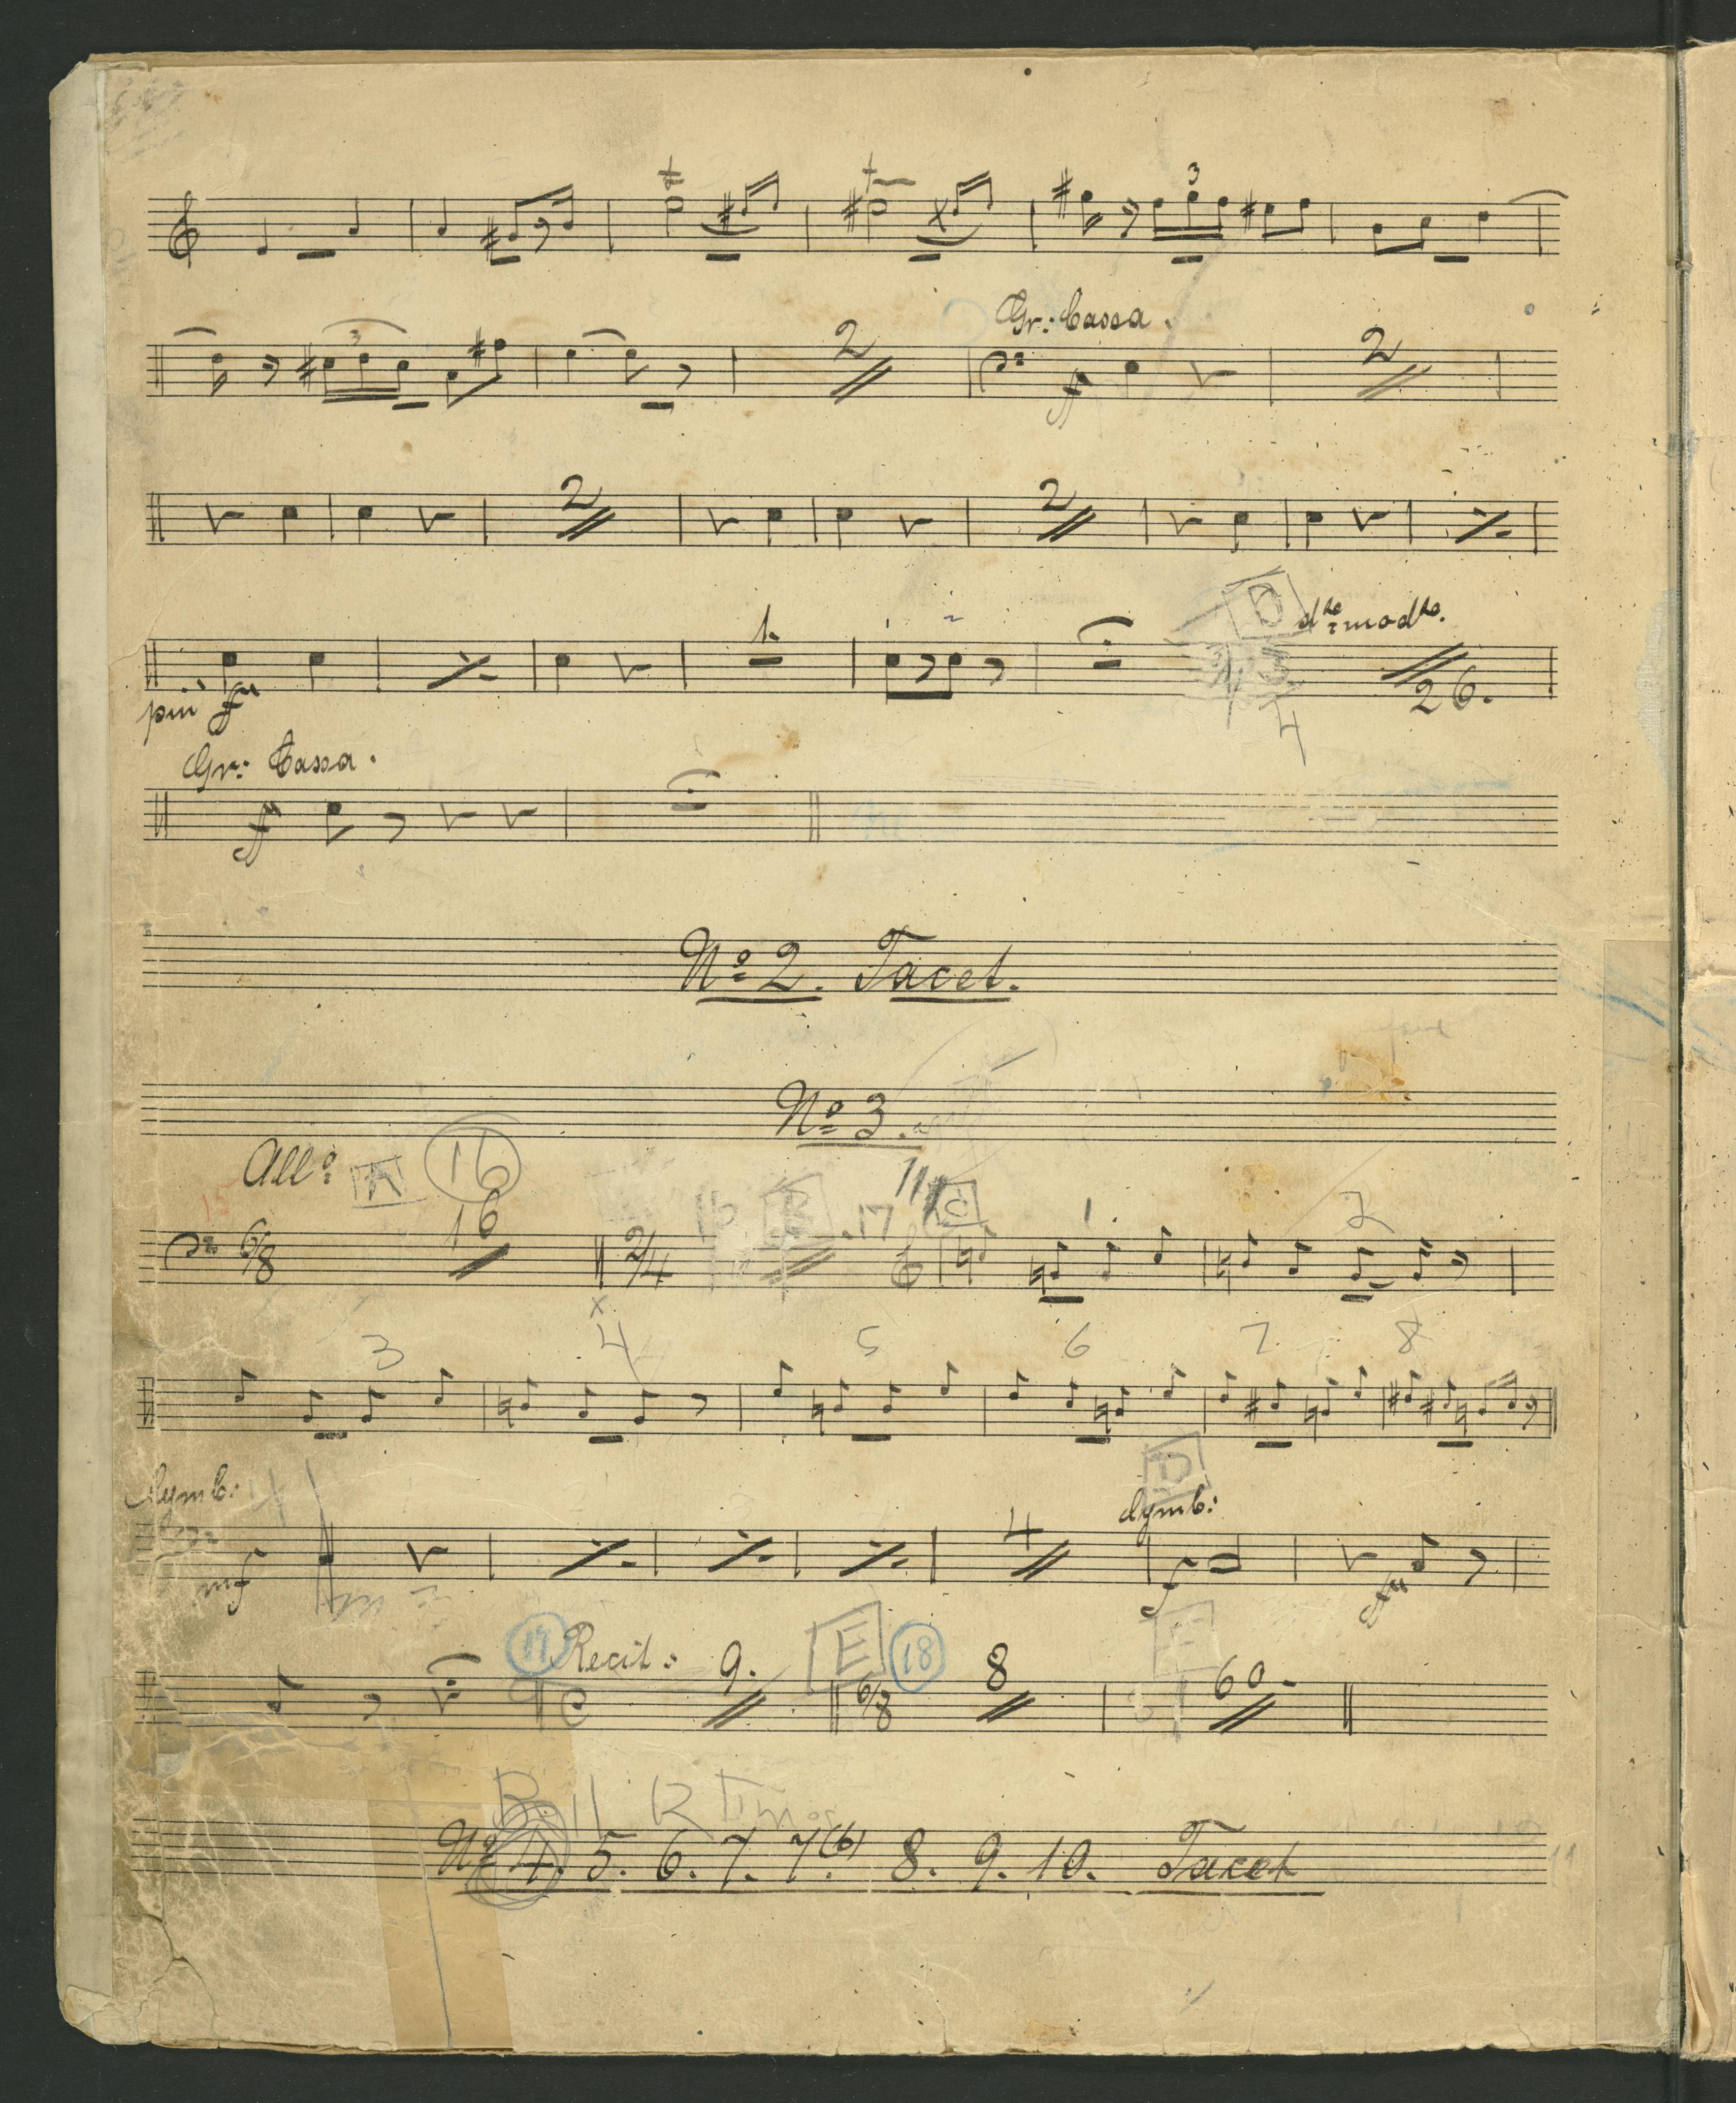 3
3 2 Gr: Cassa. ff 2
2 2
più ff 1. D do modto. 3 4 26.
Gr: Cassa.
ff
No 2. Tacet.
No 3.
Allo A 16
15 6/8 16 2/4 16 B 17 C 1 2
3 4 5 6 7 8
Cymb: D
mf 4 Cymb: f ff
17 Recit: 9. E 18 6/8 8 60.
C
B. 11 12
No 4. 5. 6. 7. 7(b) 8. 9. 10. Tacet